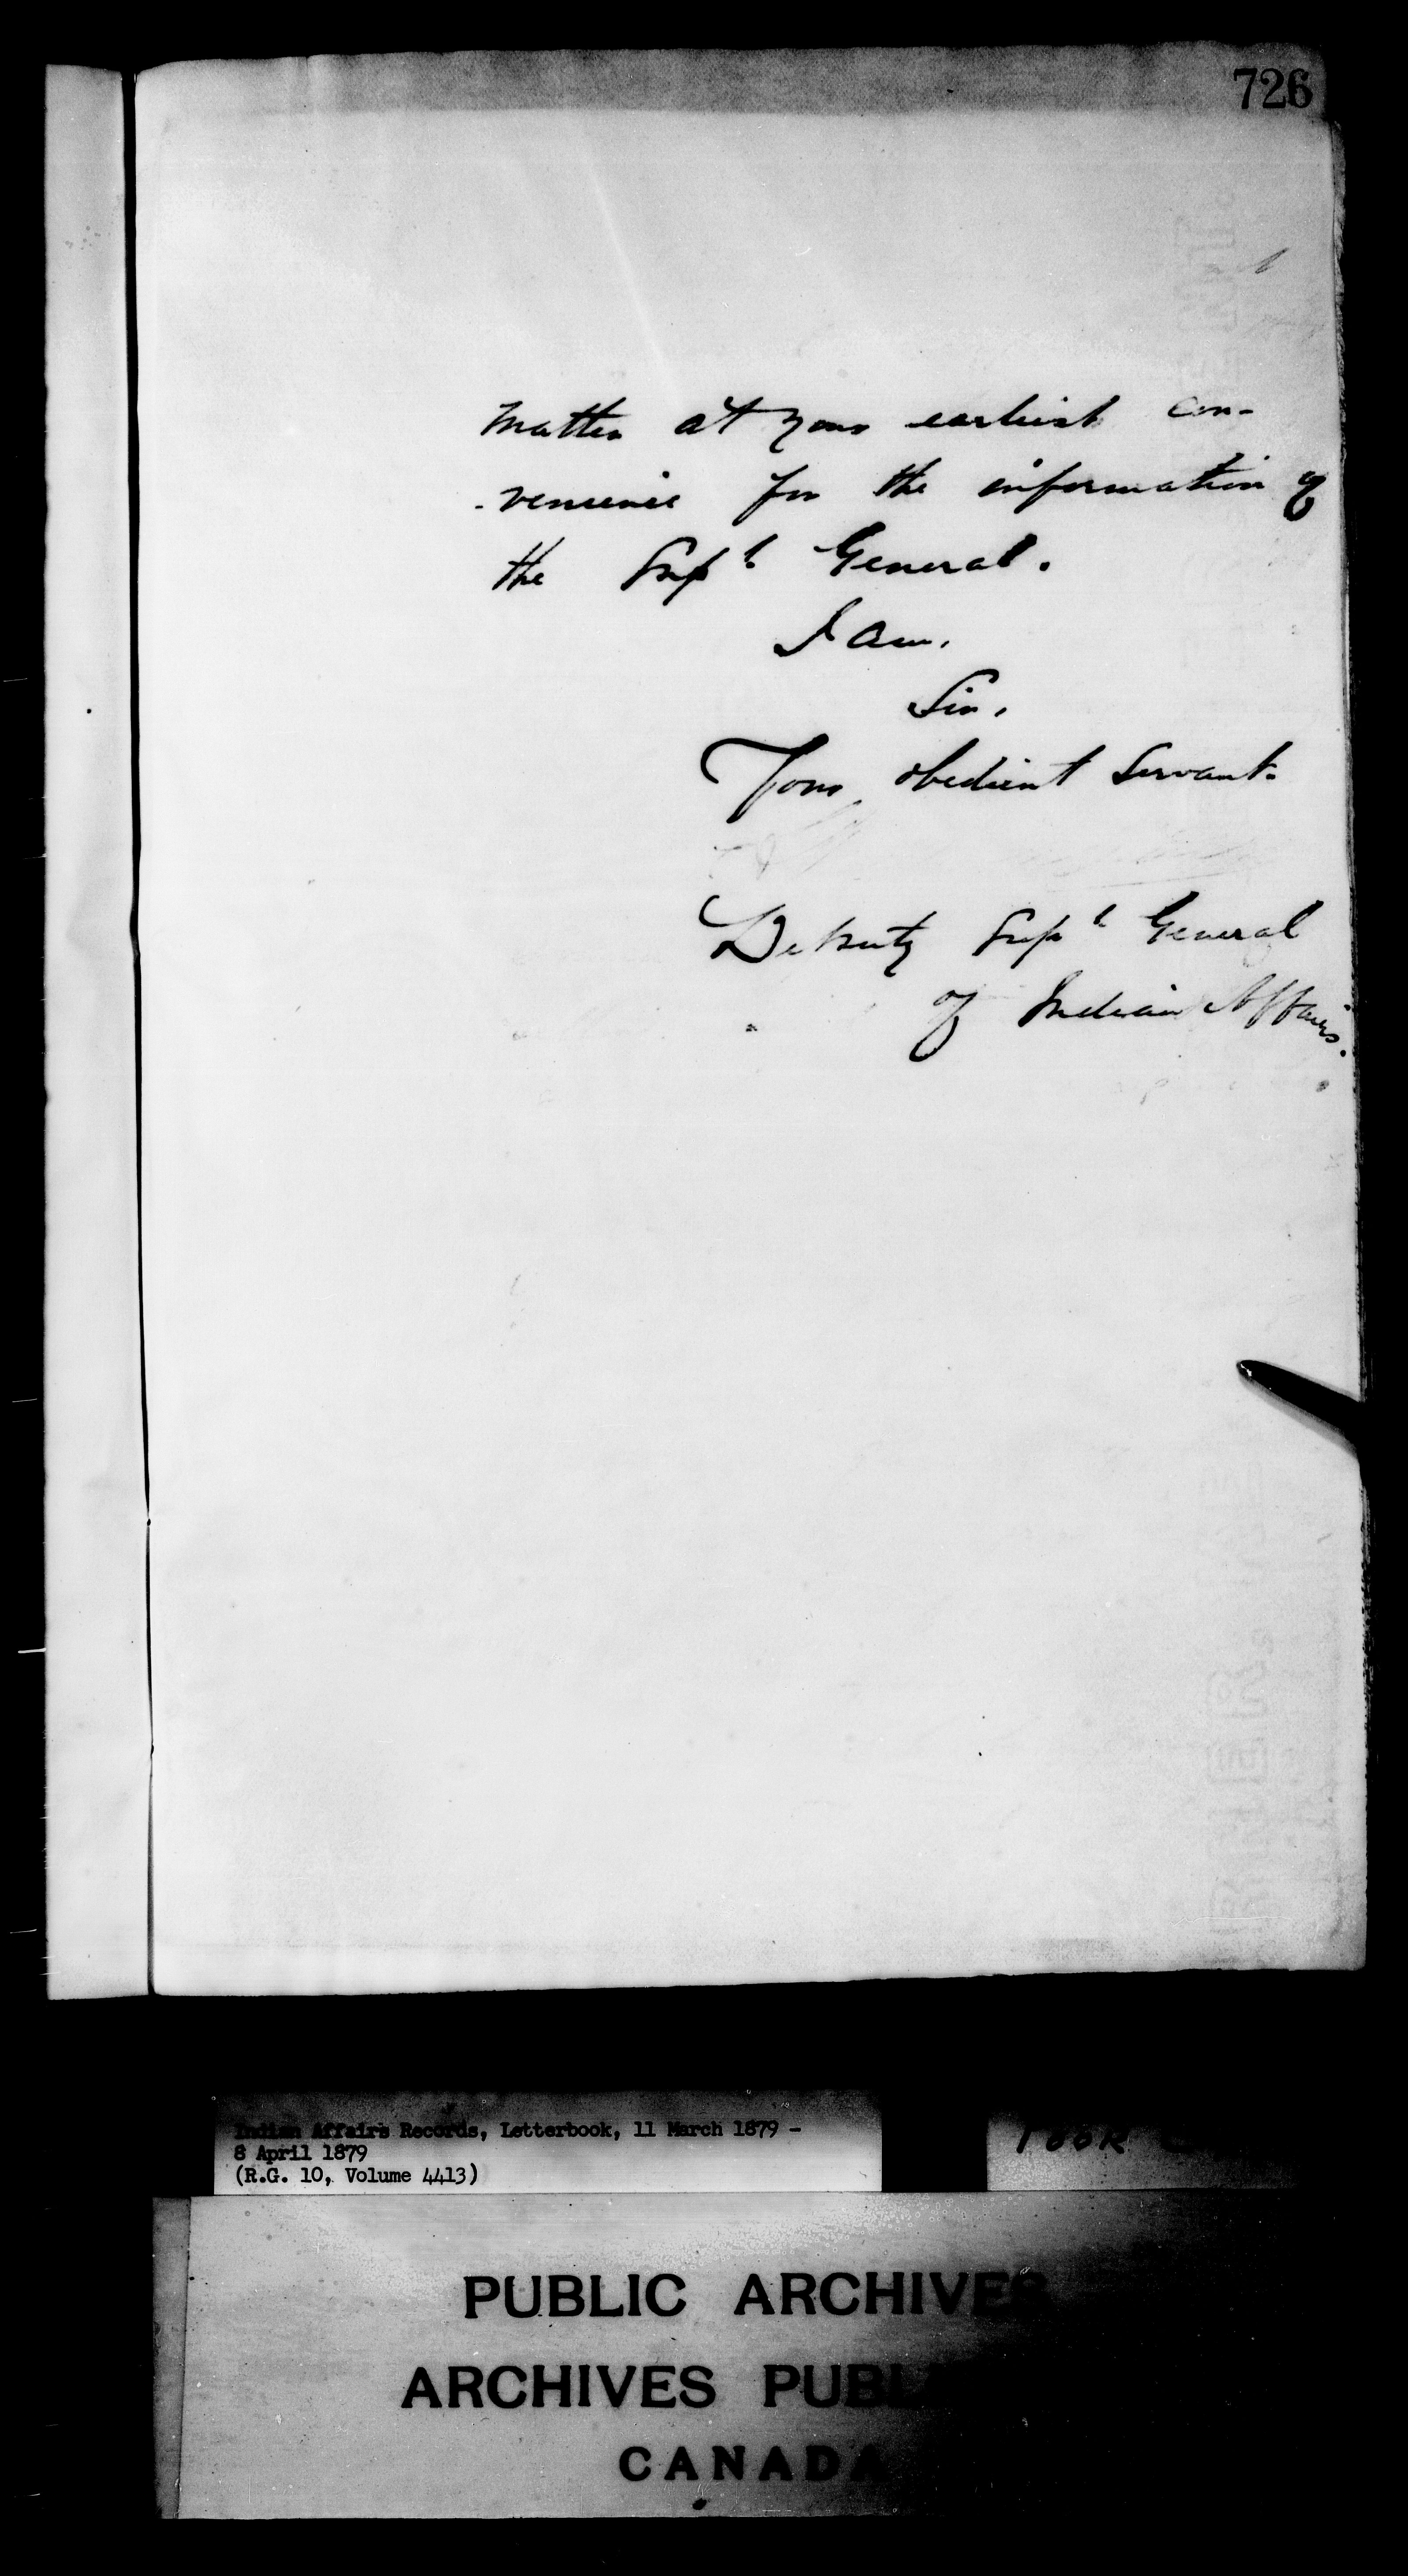 726
matter at your earliest con-
-venience for the information of
the Supt General.
I am,
Sir,
Your obedient Servant.
Deputy Supt General
of Indian Affairs.
Indian Affairs Records, Letterbook, 11 March 1879 -
8 April 1879
(R.G. 10, Volume 4413)
PUBLIC ARCHIVES
ARCHIVES PUBL
CANADA